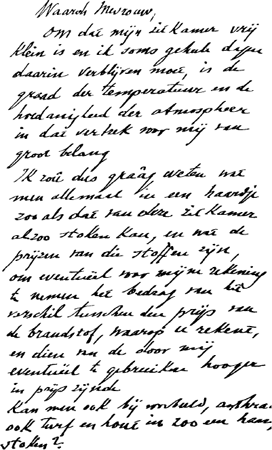 Waarde Mevrouw,
Om dat mijn zit kamer vrij
klein is en ik soms geheele dagen
daarin verblijven moet, is de
graad der temperatuur en de
hoedanigheid der atmospheer
in dat vertrek voor mij van
groot belang
Ik zou dus graag weten wat
men allemaal in een haardje
zoo als dat van deze zit kamer
alzoo stoken kan, en wat de
prijzen van die stoffen zijn,
om eventueel voor mijne rekening
te nemen het bedrag van het
verschil tusschen den prijs van
de brandstof, waarop u rekent,
en dien van de door mij
eventueel te gebruiken hooger
in prijs zijnde
Kan men ook bij voorbeeld, anthra
ook turf en hout in zoo een haard
stoken?